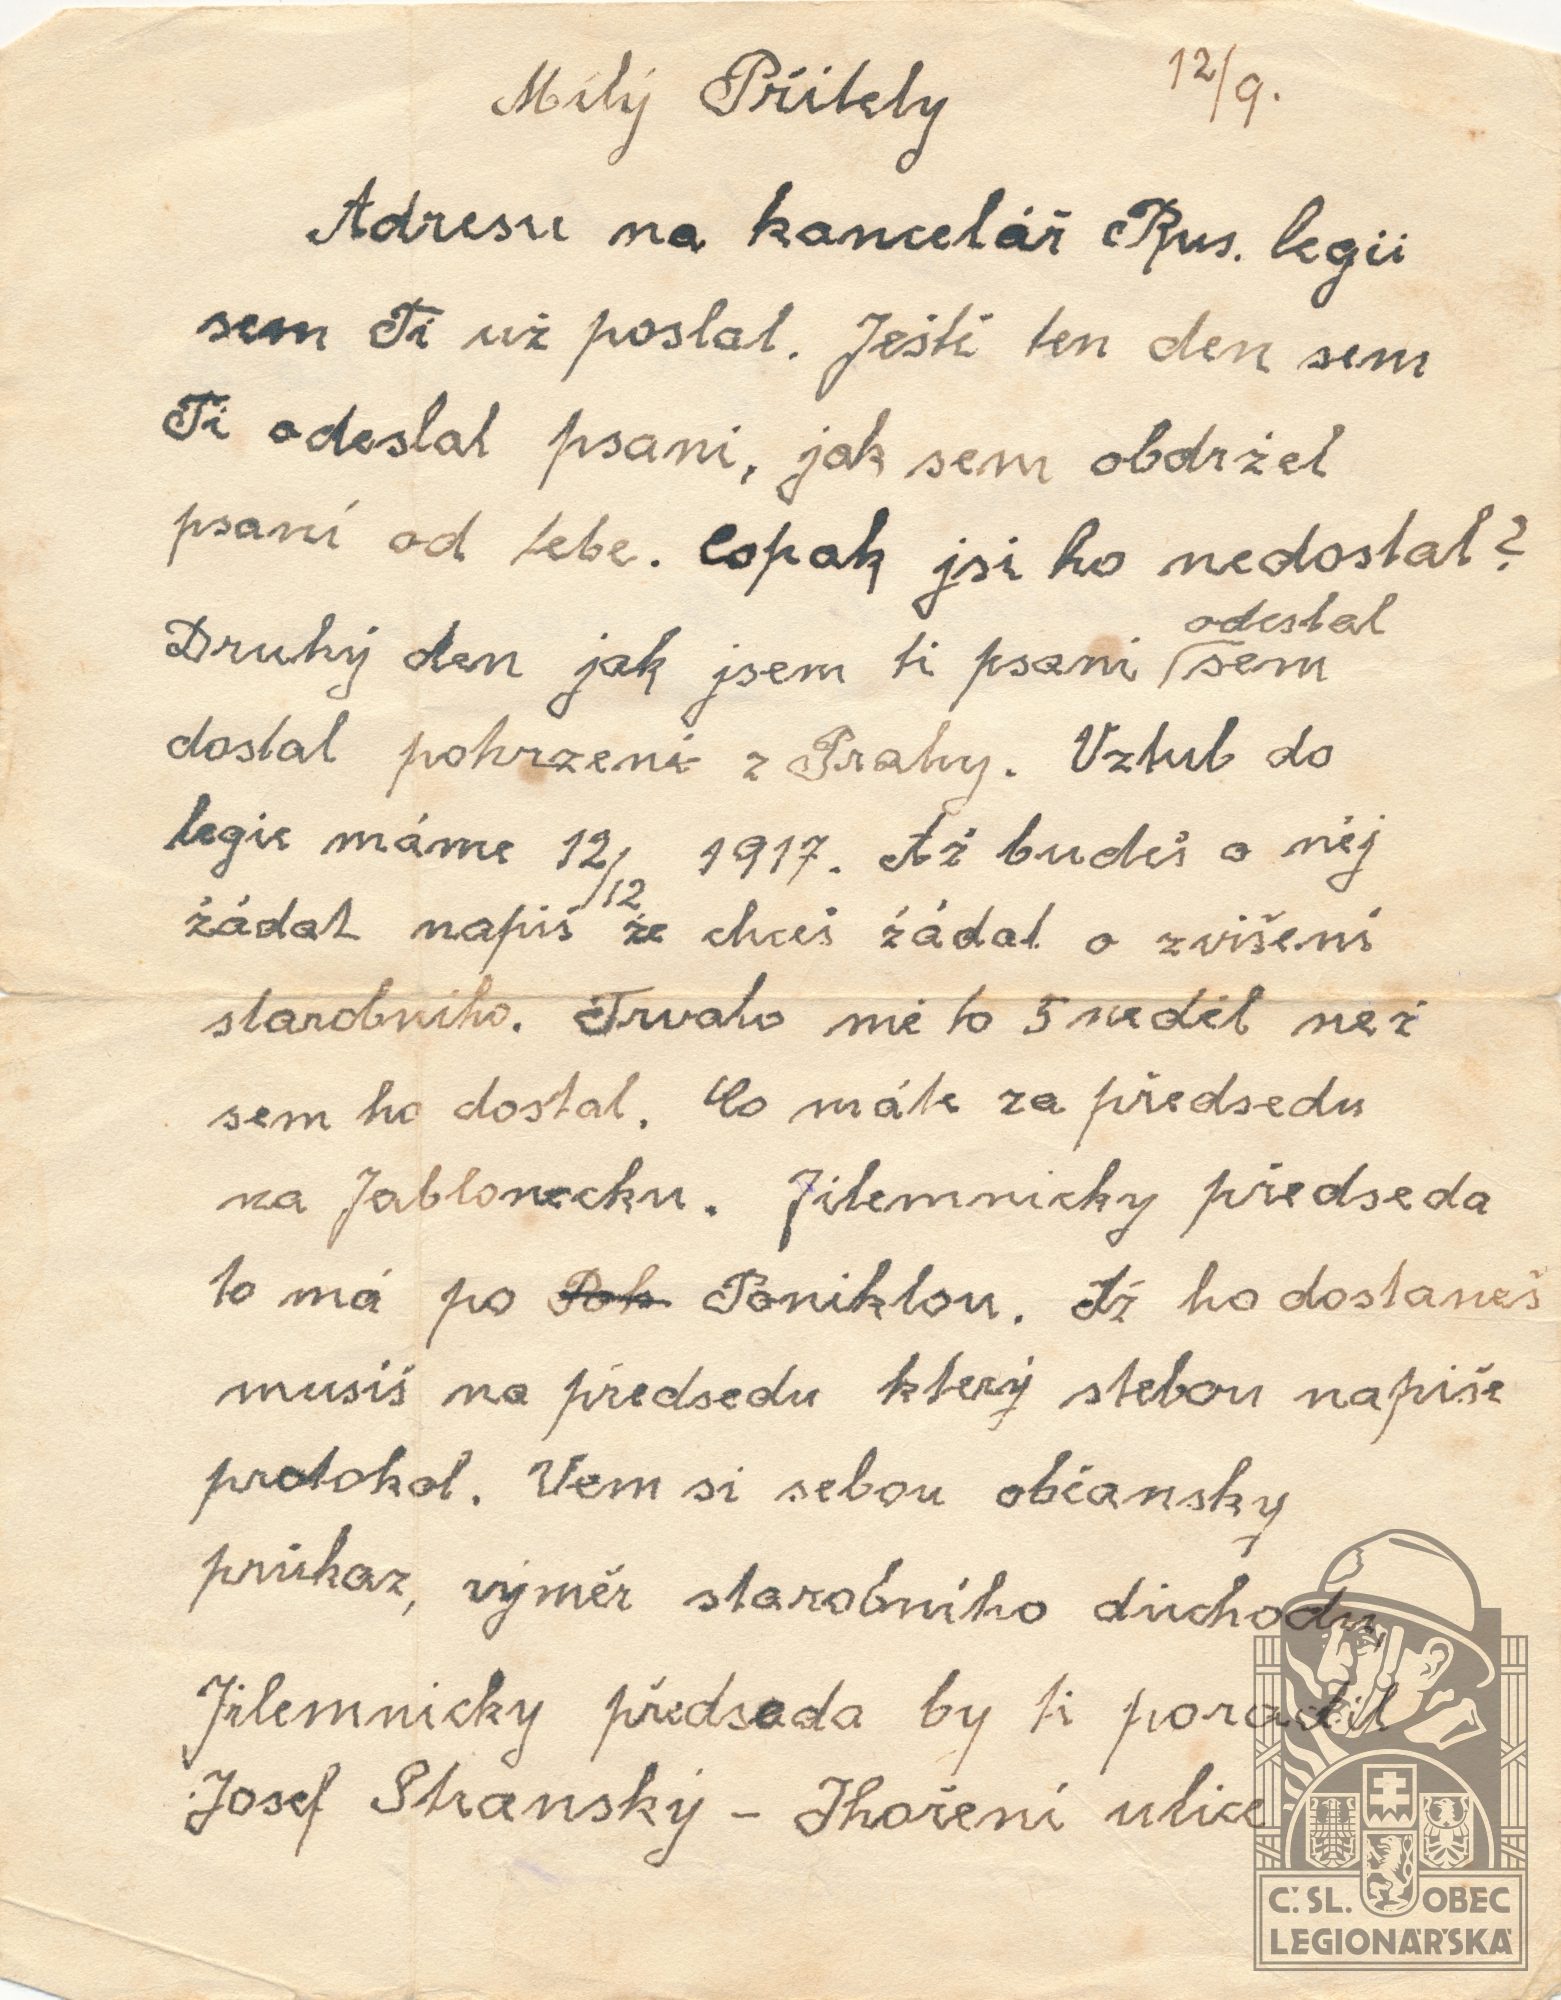 Milý Příteli 12/9.
Adresu na kancelář Rus. legii
sem Ti už poslal. Ješti ten den sem
Ti odeslal psani, jak sem obdržel
psaní od tebe. Copak jsi ho nedostal?
odeslal
Druhý den jak jsem ti psani sem
dostal pohrzeni z Prahy. Vztub do
legie máme 12/12 1917. Až budeš o něj
žádat napiš že chceš žádat o zvišení
starobniho. Trvalo mě to 5 neděl než
sem ho dostal. Co máte za předsedu
na Jablonecku. Jilemnicky předseda
to má po Poh Poniklou. Až ho dostaneš
musíš na předsedu který stebou napiše
protokol. Vem si sebou občansky
průkaz, výměr starobního důchodu,
Jilemnicky předseda by ti poradil
Josef Stránský - Jhoření ulice
Č.SL. OBEC
LEGIONÁŘSKÁ